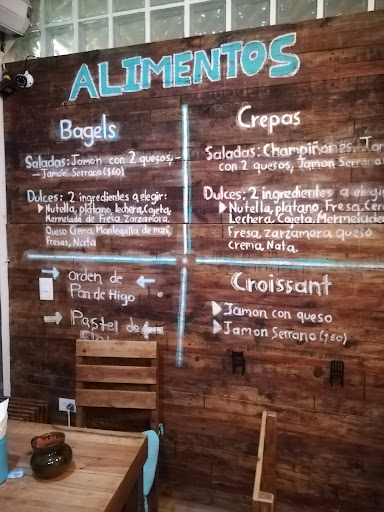 ALIMENTOS
Bagels
Saladas: Jamón con 2 quesos,
Jamón Serrano ($60)
Dulces: 2 ingredientes a elegir:
Nutella, plátano, lechera, Cajeta,
Mermelada de Fresa, Zarzamora,
Queso Crema, Mantequilla de maní,
Fresas, Nata
Orden de
Pan de Higo
Pastel de
Crepas
Saladas: Champiñones, Jamón
con 2 quesos, Jamon Serrano
Dulces: 2 ingredientes a
Nutella, plátano, Fresa,
Lechera, Cajeta, Mermelada
Fresa, zarzamora queso
crema, Nata.
Croissant
Jamon con queso
Jamon Serrano ($60)